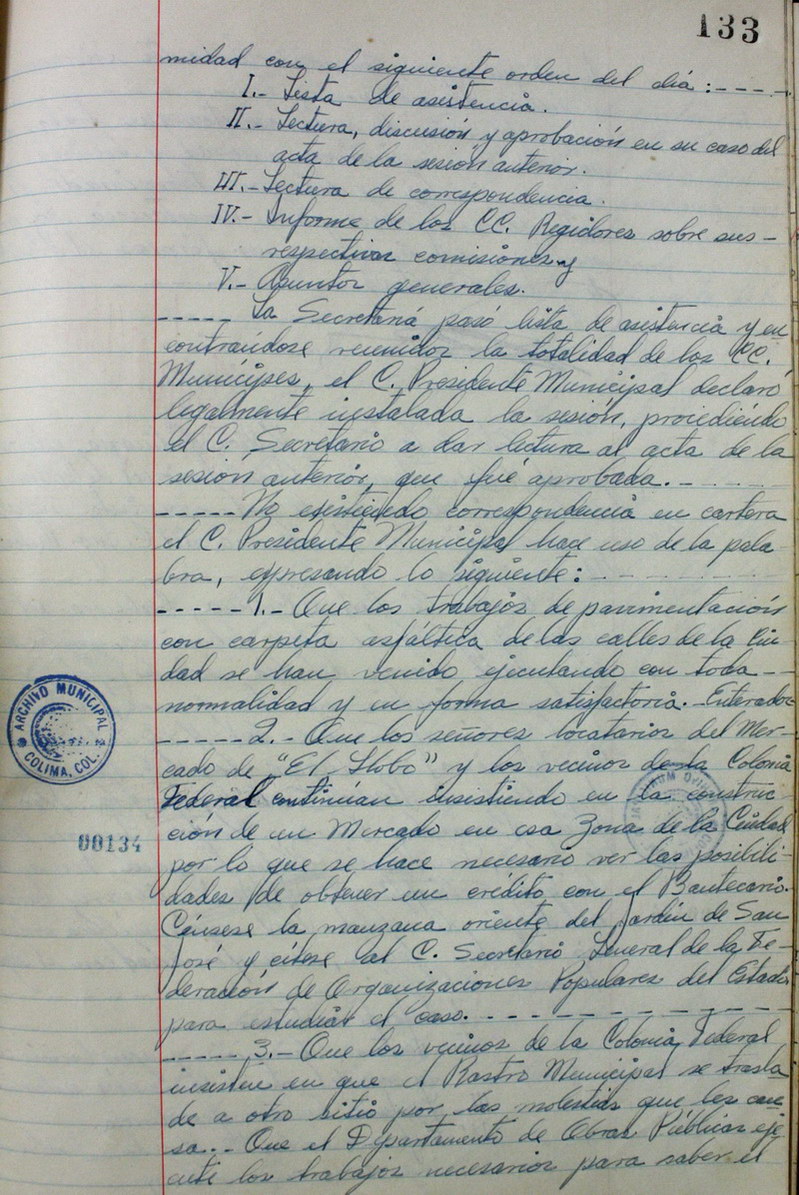 133
midad con el siguiente orden del día : - - - -
I.- Lista de asistencia.
II.- Lectura, discusión y aprobación en su caso del
acta de la sesión anterior.
III.- Lectura de correspondencia.
IV.- Informe de los CC. Regidores sobre sus -
respectivas comisiones y
V.- Asuntos generales.
- - - - - La Secretaría pasó lista de asistencia y en
contrándose reunidos la totalidad de los CC.
Munícipes, el C. Presidente Municipal declaró
legalmente instalada la sesión, procediendo
el C. Secretario a dar lectura al acta de la
sesión anterior, que fué aprobada. - - - - -
- - - - - No existiendo correspondencia en cartera
el C. Presidente Municipal hace uso de la pala
bra, expresando lo siguiente: - - - - - -
- - - - - 1.- Que los trabajos de pavimentación
con carpeta asfáltica de las calles de la Ciu-
dad se han venido ejecutando con toda -
normalidad y en forma satisfactoria. - Enterados
- - - - - 2.- Que los señores locatarios del Mer-
cado de "El Globo" y los vecinos de la Colonia
Federal continúan insistiendo en la construc
ción de un Mercado en esa Zona de la Ciudad
por lo que se hace necesario ver las posibili-
dades de obtener un crédito con el
Cénsese la manzana oriente del Jardín de San
José y cítese al C. Secretario General de la Fe-
deración de Organizaciones Populares del Estado
para estudiar el caso. - - - - - - - - - -
- - - - - 3.- Que los vecinos de la Colonia Federal
insisten en que el Rastro Municipal se trasla
de a otro sitio por las molestias que les cau
sa.- Que el Departamento de Obras Públicas eje
cute los trabajos necesarios para saber el
ARCHIVO MUNICIPAL
COLIMA, COL.
00134